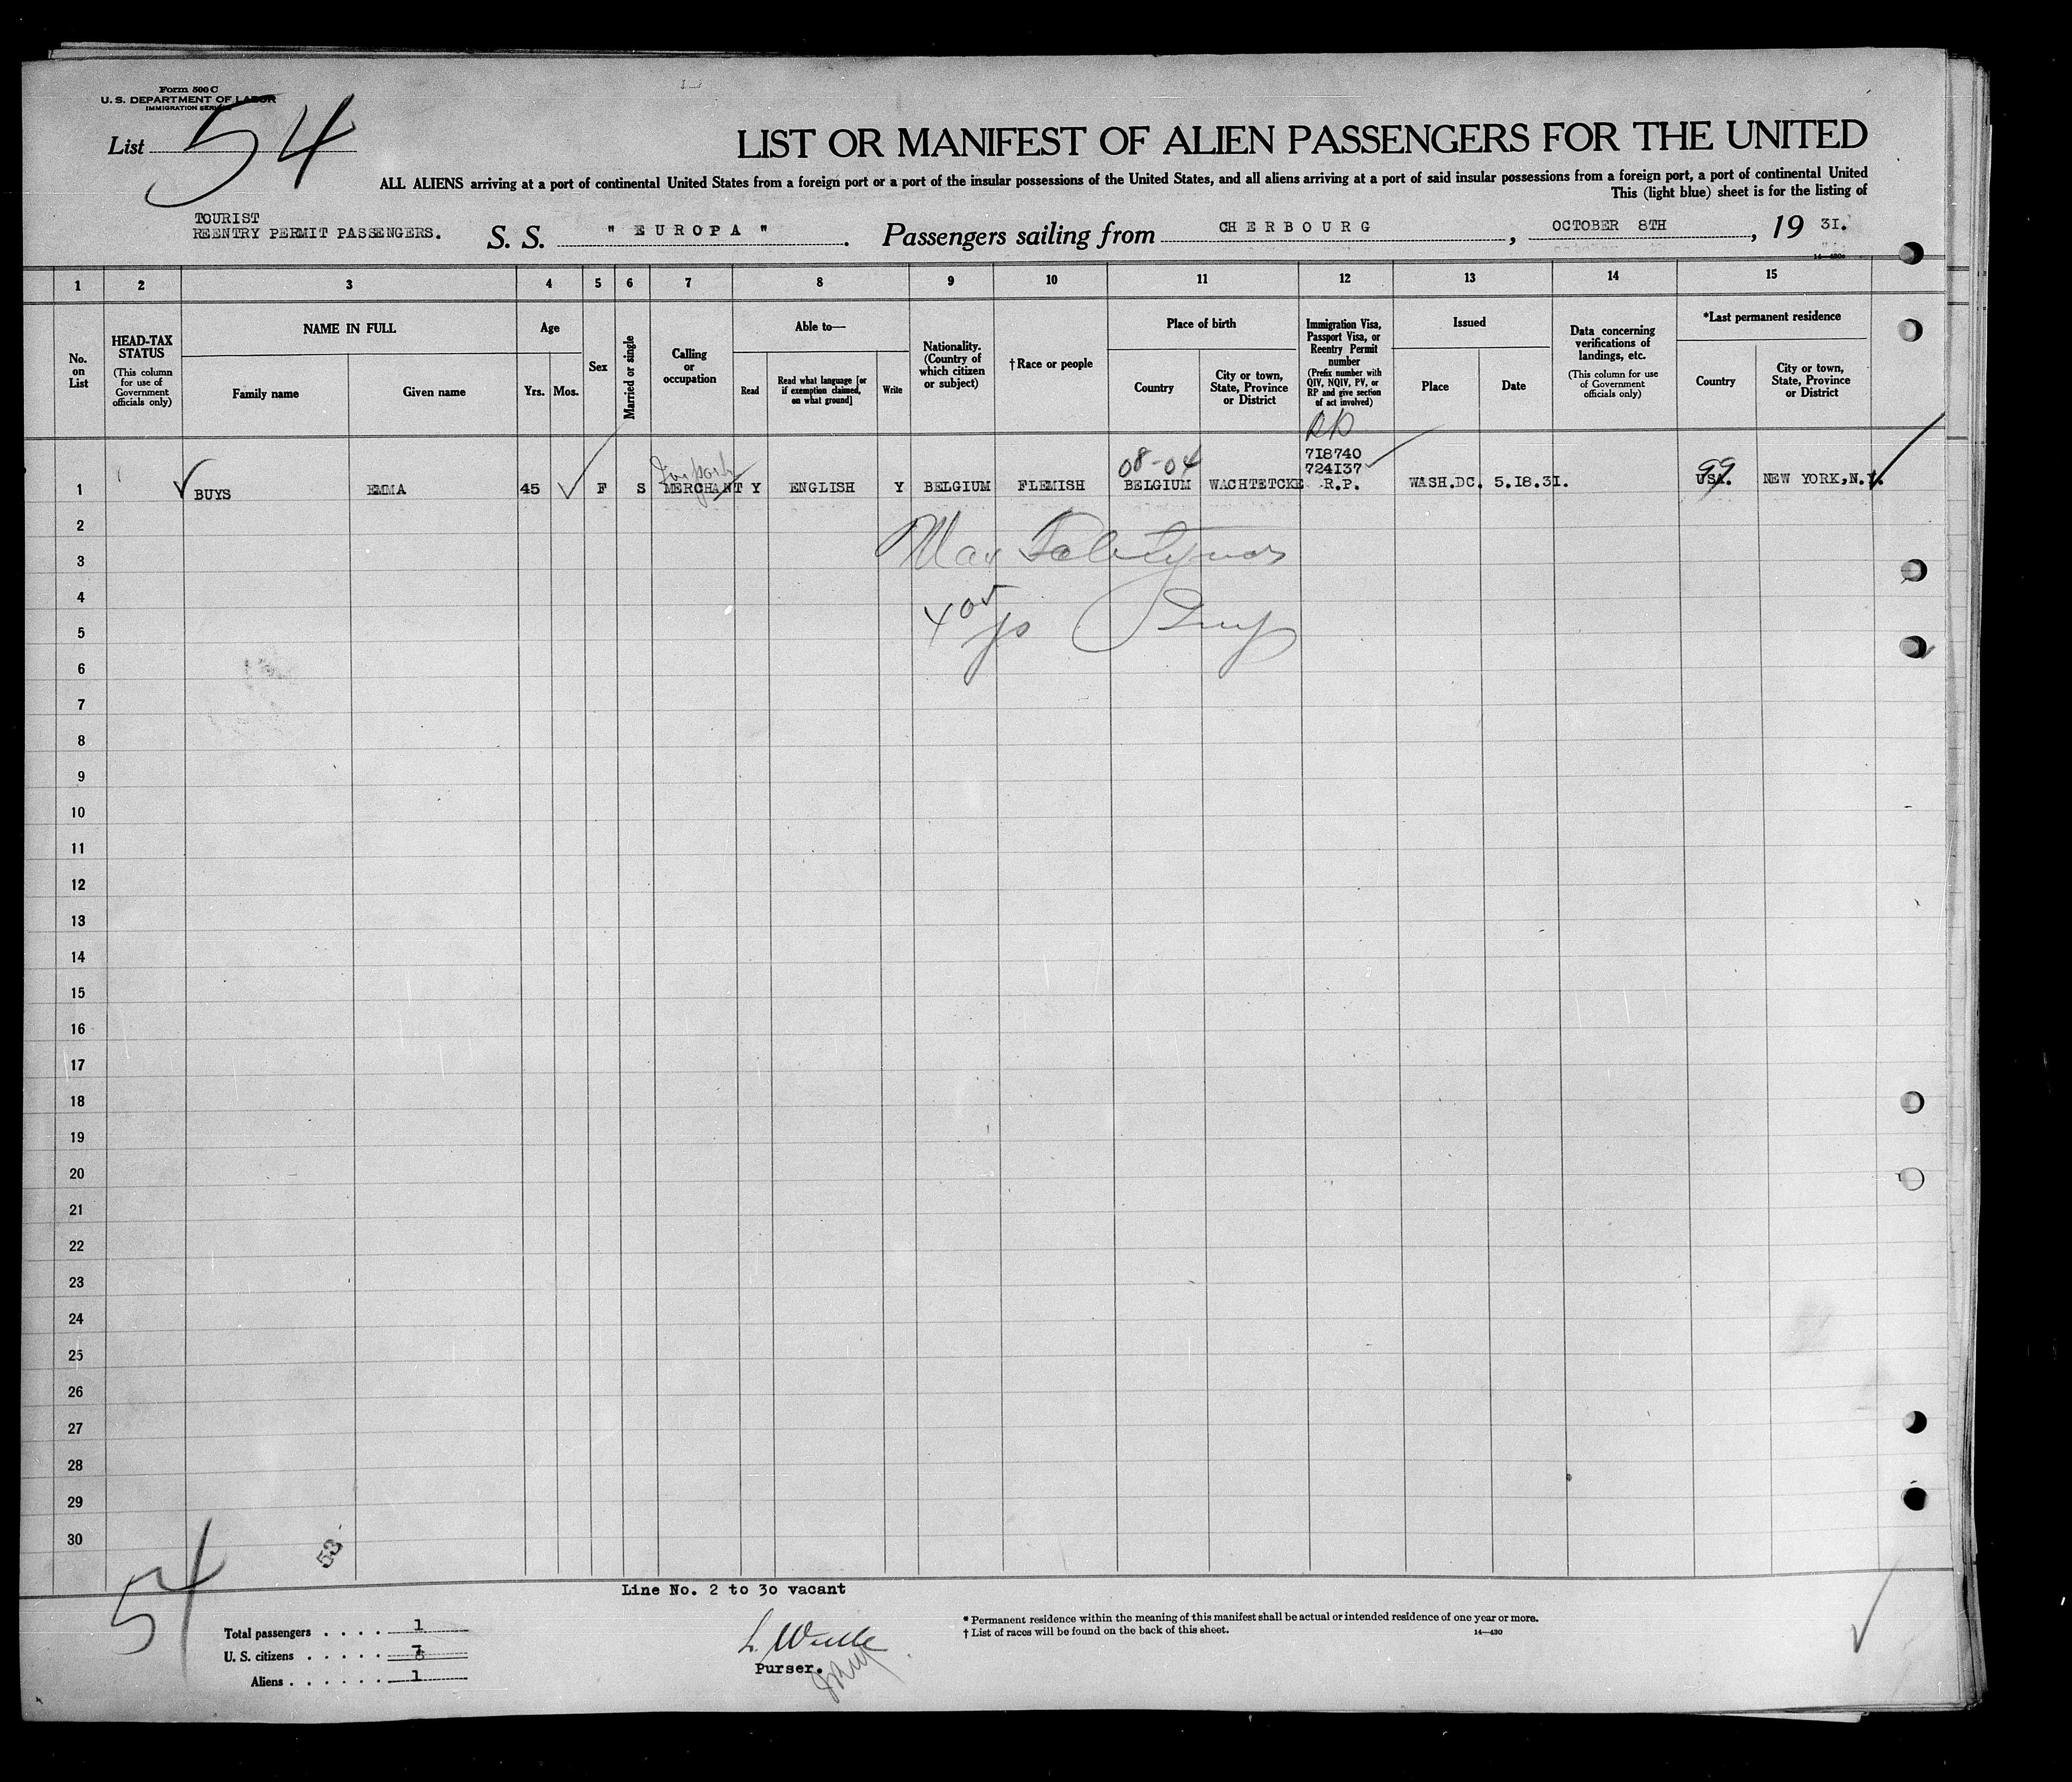 Form 500 C
U. S. DEPARTMENT OF LABOR
IMMIGRATION SERVICE
List 54
LIST OR MANIFEST OF ALIEN PASSENGERS FOR THE UNITED
ALL ALIENS arriving at a port of continental United States from a foreign port or a port of the insular possessions of the United States, and all aliens arriving at a port of said insular possessions from a foreign port, a port of continental United
This (light blue) sheet is for the listing of
TOURIST
REENTRY PERMIT PASSENGERS.
S. S. " EUROPA " . Passengers sailing from CHERBOURG , OCTOBER 8TH , 19 31.
14—430a
1 2 3 4 5 6 7 8 9 10 11 12 13 14 15
No. on List
HEAD-TAX STATUS
(This column for use of Government officials only)
NAME IN FULL
Family name
Given name
Age
Yrs.
Mos.
Sex
Married or single
Calling or occupation
Able to—
Read
Read what language [or if exemption claimed, on what ground]
Write
Nationality. (Country of which citizen or subject)
† Race or people
Place of birth
Country
City or town, State, Province or District
Immigration Visa, Passport Visa, or Reentry Permit number
(Prefix number with QIV, NQIV, PV, or RP and give section of act involved)
Issued
Place
Date
Data concerning verifications of landings, etc.
(This column for use of Government officials only)
*Last permanent residence
Country
City or town, State, Province or District
RP
718740
08-04 724137 99
1 BUYS EMMA 45 F S MERCHANT Y ENGLISH Y BELGIUM FLEMISH BELGIUM WACHTETCKE R.P. WASH.DC. 5.18.31. USA. NEW YORK,N.Y.
2
3
4
5
6
7
8
9
10
11
12
13
14
15
16
17
18
19
20
21
22
23
24
25
26
27
28
29
30
53
54
Line No. 2 to 30 vacant
Total passengers . . . . 1
U. S. citizens . . . . .
Aliens . . . . . . 1
Purser.
* Permanent residence within the meaning of this manifest shall be actual or intended residence of one year or more.
† List of races will be found on the back of this sheet.
14—430